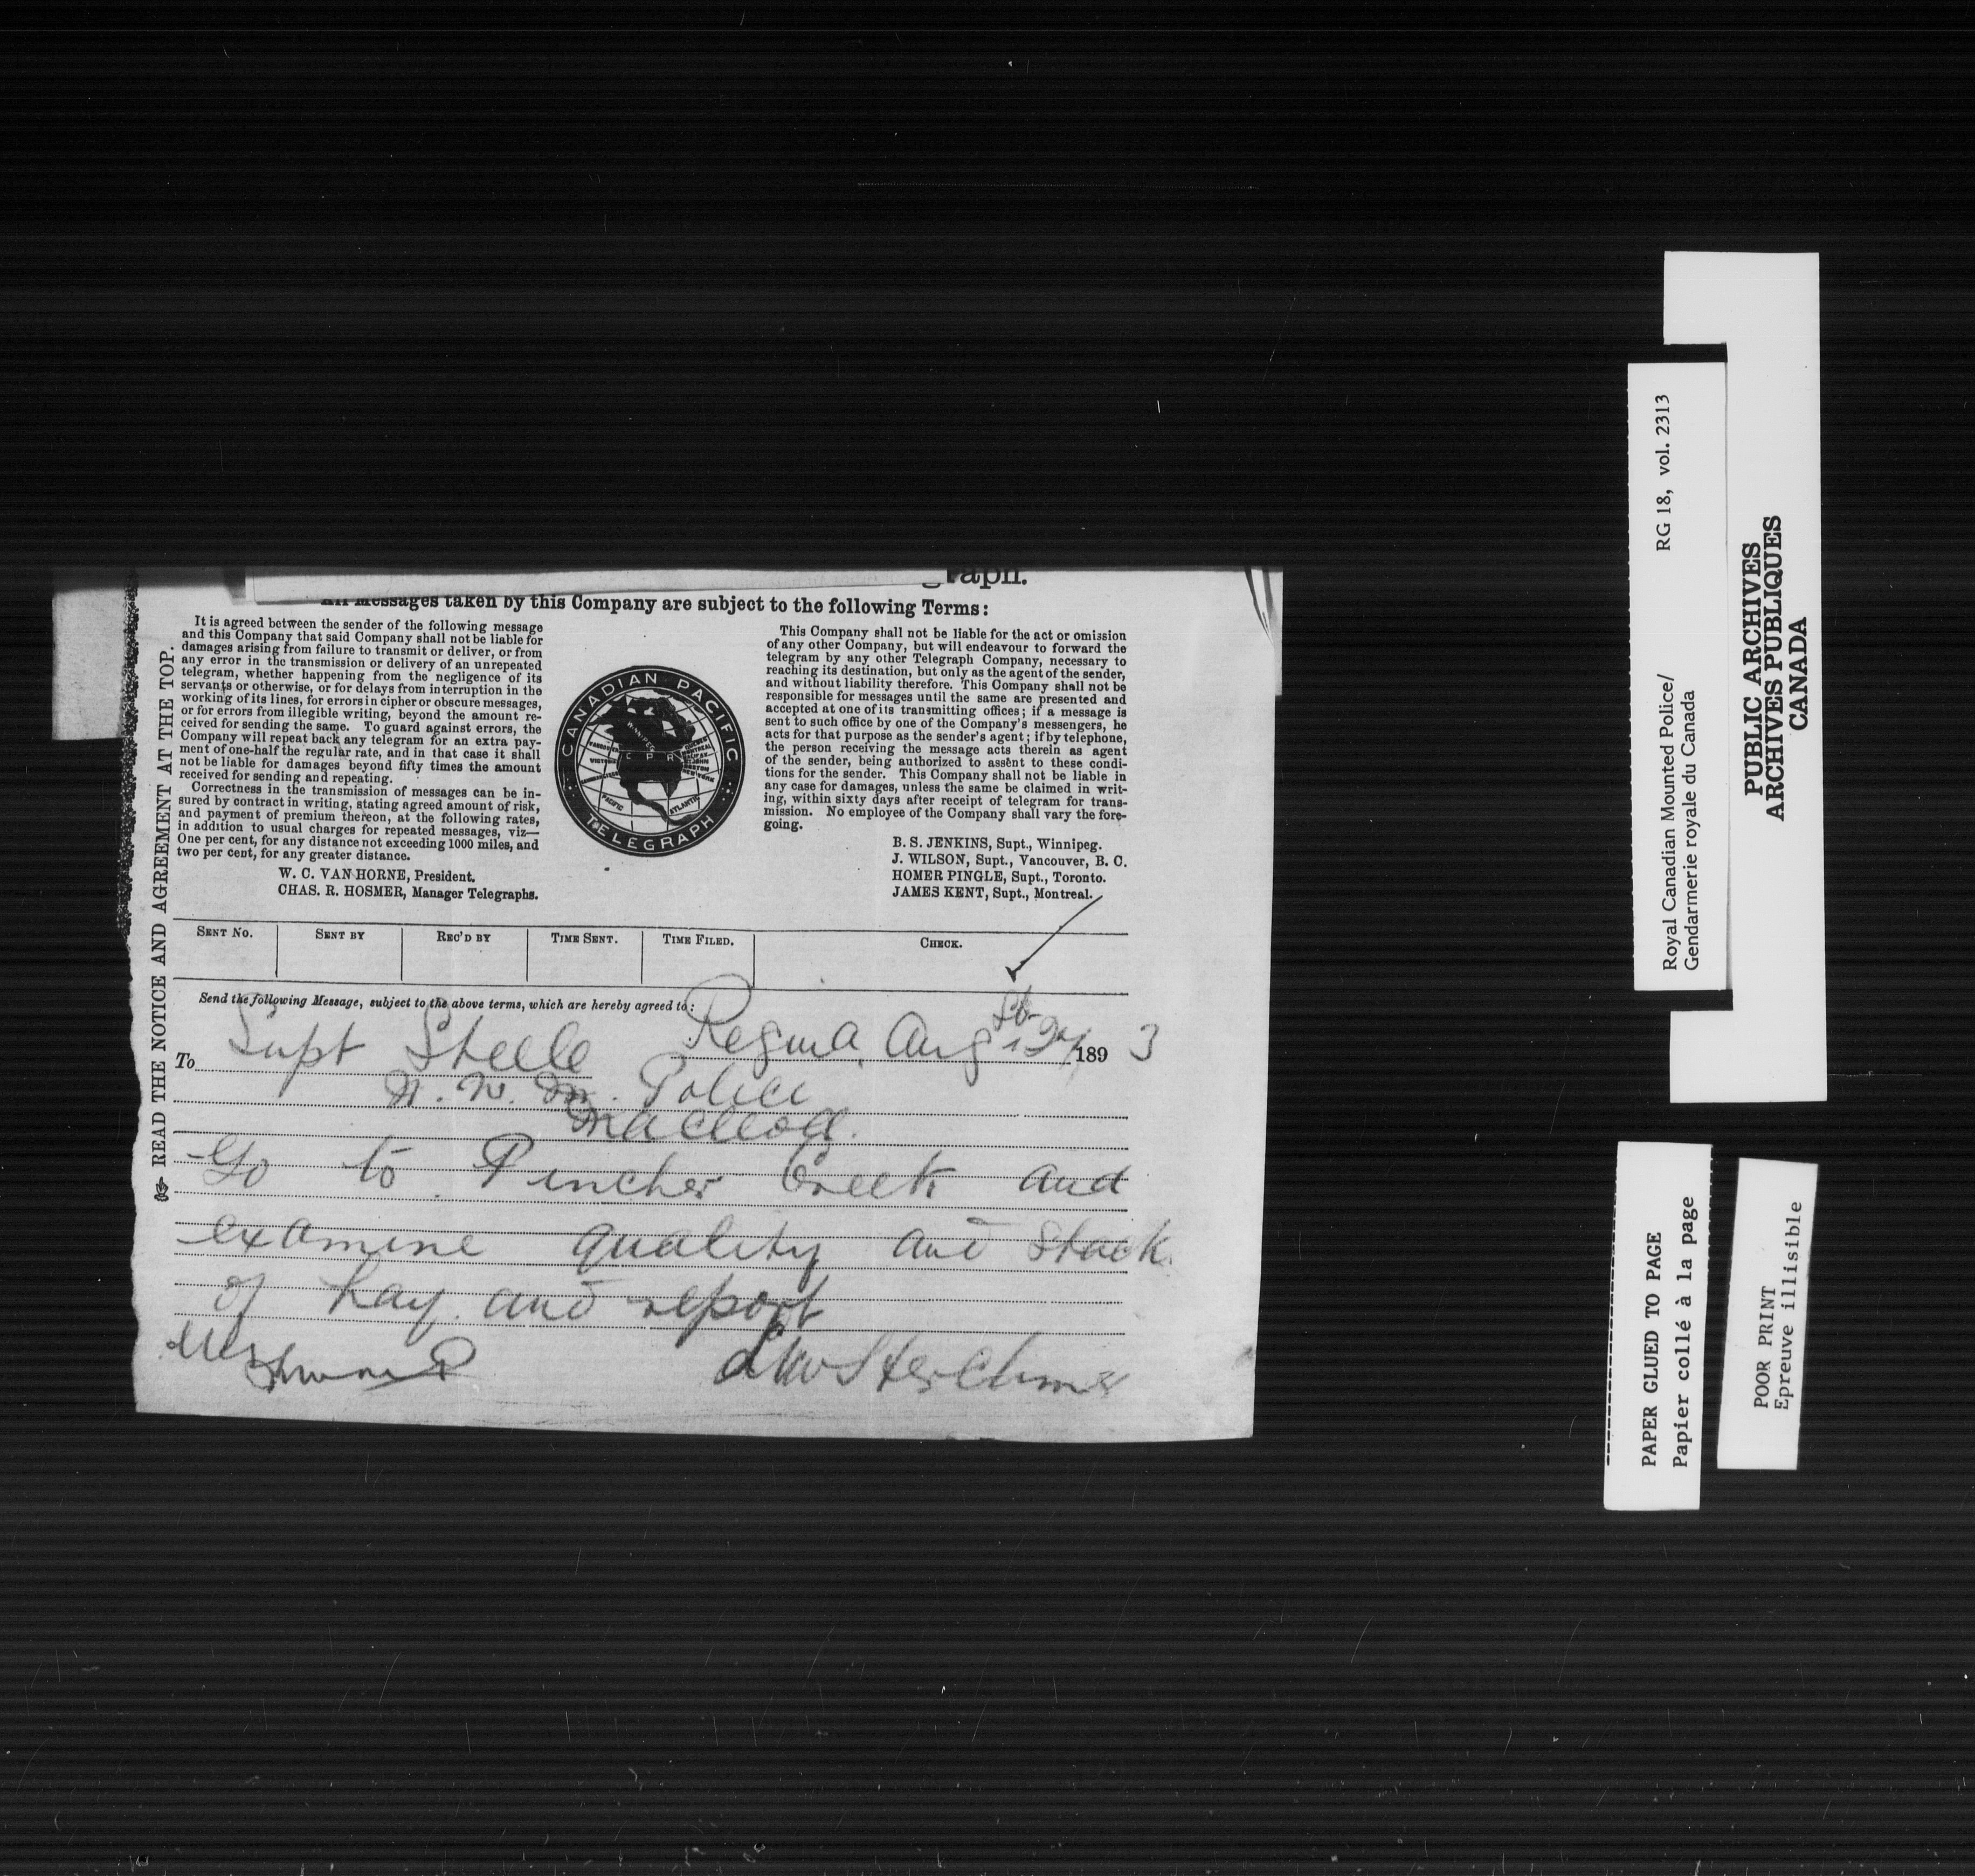 All messages taken by this Company are subject to the following Terms:
It is agreed between the sender of the following message
and this Company that said Company shall not be liable for
damages arising from failure to transmit or deliver, or from
any error in the transmission or delivery of an unrepeated
telegram, whether happening from the negligence of its
servants or otherwise, or for delays from interruption in the
working of its lines, for errors in cipher or obscure messages,
or for errors from illegible writing, beyond the amount re-
ceived for sending the same. To guard against errors, the
Company will repeat back any telegram for an extra pay-
ment of one-half the regular rate, and in that case it shall
not be liable for damages beyond fifty times the amount
received for sending and repeating.
Correctness in the transmission of messages can be in-
sured by contract in writing, stating agreed amount of risk,
and payment of premium thereon, at the following rates,
in addition to usual charges for repeated messages, viz—
One per cent, for any distance not exceeding 1000 miles, and
two per cent, for any greater distance.
W. C. VAN HORNE, President.
CHAS. R. HOSMER, Manager Telegraphs.
CANADIAN PACIFIC
WINNIPEG
VANCOUVER
VICTORIA
C P R
MONTREAL
HALIFAX
ST JOHN
BOSTON
NEW YORK
PACIFIC
ATLANTIC
TELEGRAPH
This Company shall not be liable for the act or omission
of any other Company, but will endeavour to forward the
telegram by any other Telegraph Company, necessary to
reaching its destination, but only as the agent of the sender,
and without liability therefore. This Company shall not be
responsible for messages until the same are presented and
accepted at one of its transmitting offices; if a message is
sent to such office by one of the Company's messengers, he
acts for that purpose as the sender's agent; if by telephone,
the person receiving the message acts therein as agent
of the sender, being authorized to assent to these condi-
tions for the sender. This Company shall not be liable in
any case for damages, unless the same be claimed in writ-
ing, within sixty days after receipt of telegram for trans-
mission. No employee of the Company shall vary the fore-
going.
B. S. JENKINS, Supt., Winnipeg.
J. WILSON, Supt., Vancouver, B. C.
HOMER PINGLE, Supt., Toronto.
JAMES KENT, Supt., Montreal.
READ THE NOTICE AND AGREEMENT AT THE TOP.
SENT NO. SENT BY REC'D BY TIME SENT. TIME FILED. CHECK.
Send the following Message, subject to the above terms, which are hereby agreed to:
Regina Aug 189 3
To Supt Steele
N. W. M. Police
Macleod.
Go to Pincher Creek and
examine quality and stack
of hay and report
LW Herchmer
Royal Canadian Mounted Police/ RG 18, vol. 2313
Gendarmerie royale du Canada
PUBLIC ARCHIVES
ARCHIVES PUBLIQUES
CANADA
PAPER GLUED TO PAGE
Papier collé à la page
POOR PRINT
Epreuve illisible